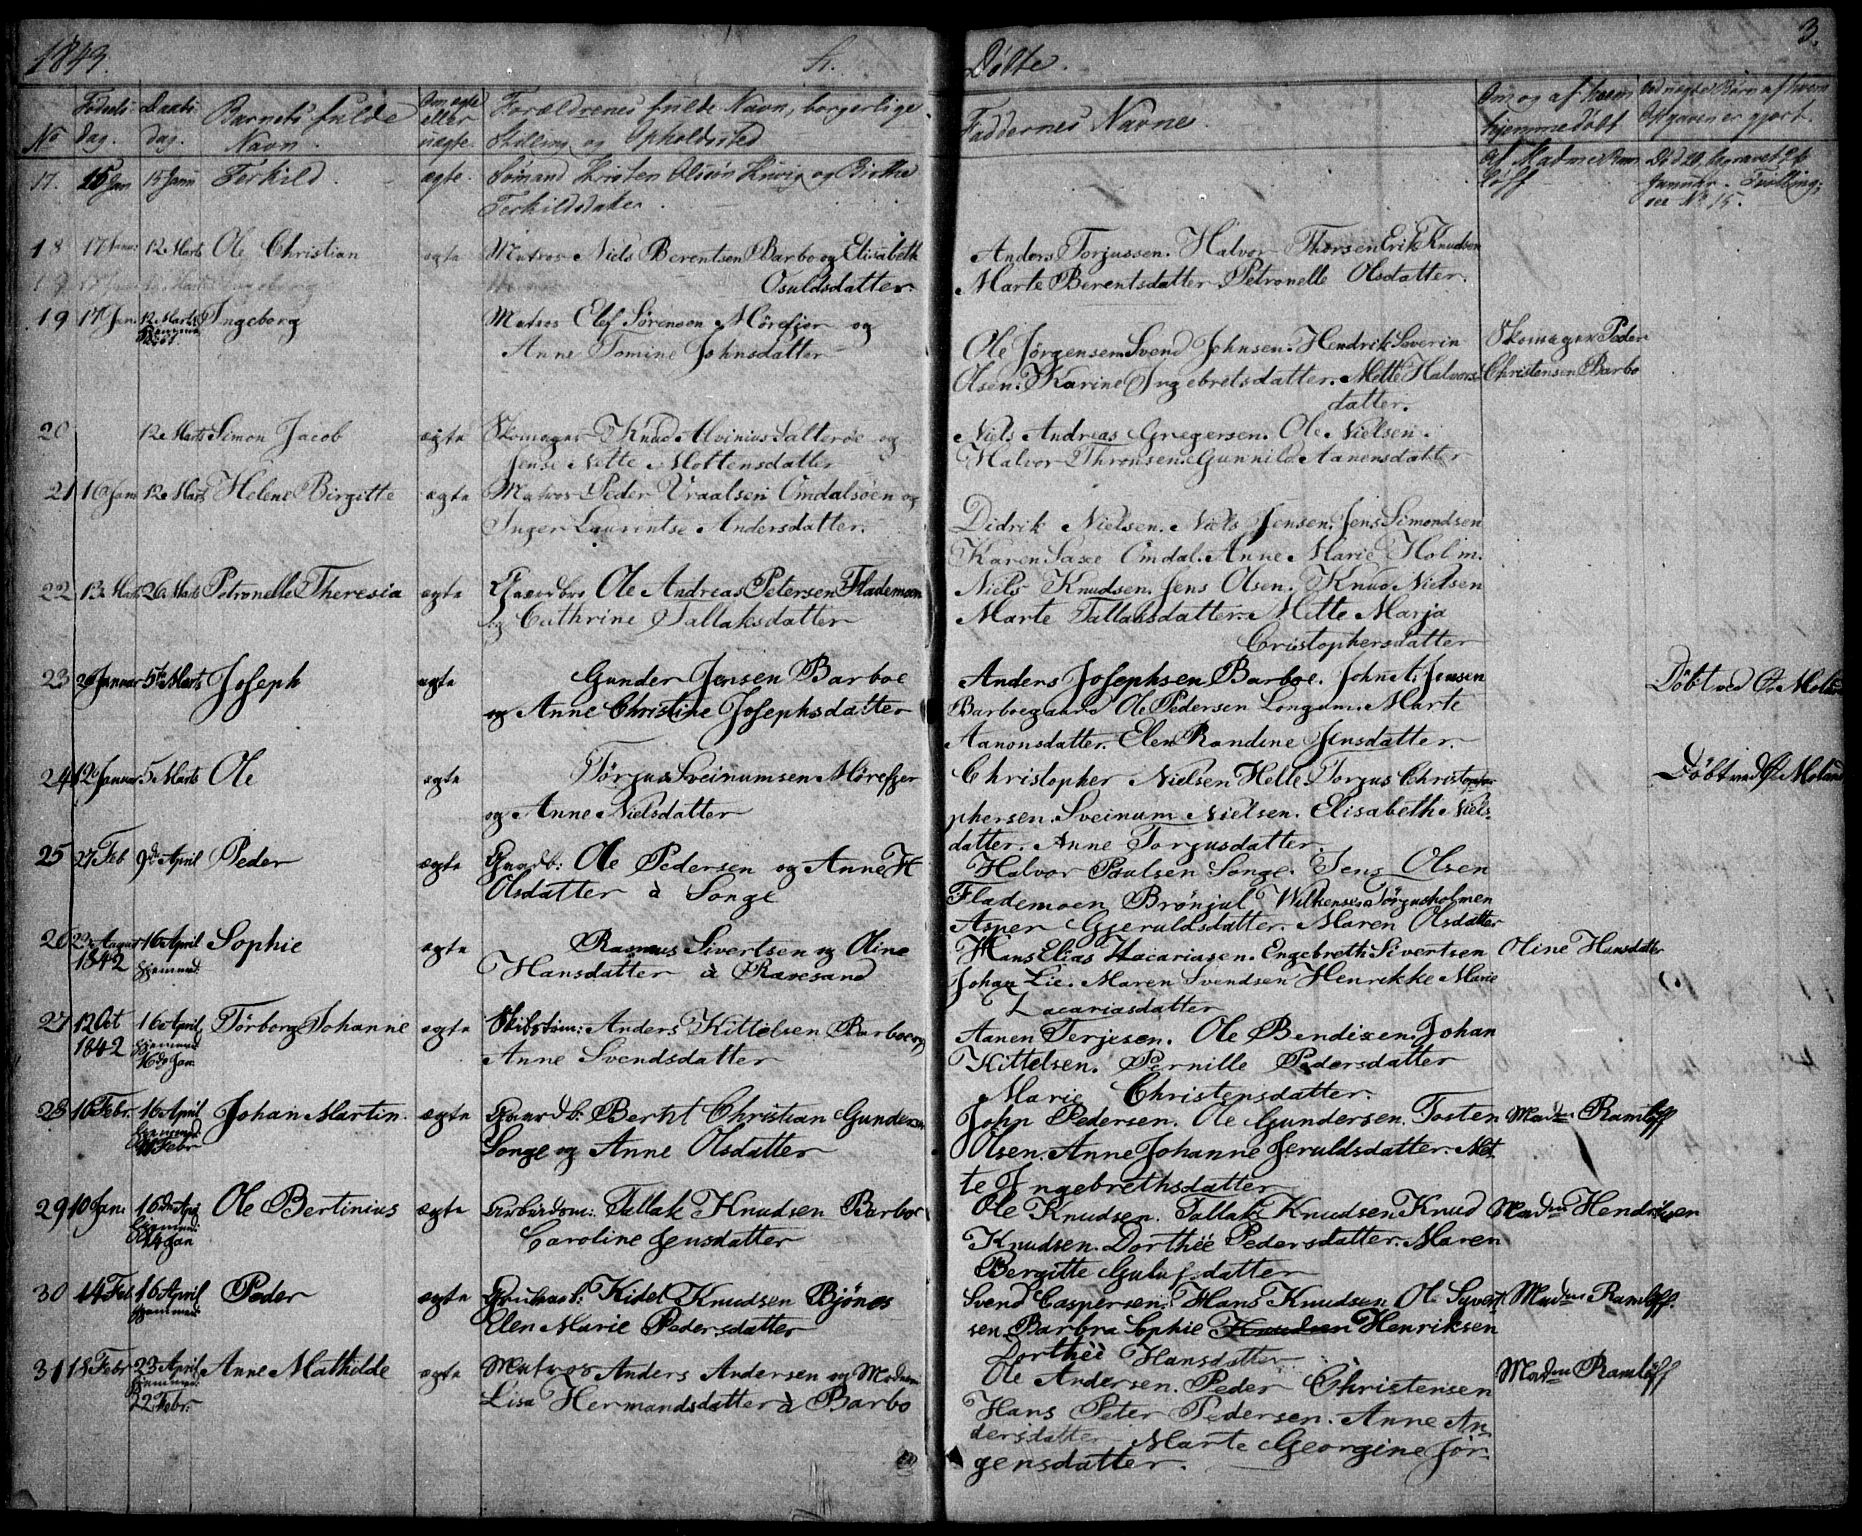 1843.
Døbte.
3.
No
Fødsels-
dag.
Daabs-
dag.
Barnets fulde
Navn.
Om ægte
eller
uægte.
Forældrenes fulde Navn, borgerlige
Stilling og Opholdssted
Faddernes Navne.
Om og af hvem
hjemmedøbt
17. 15 Jan 15 Janu Terkild. ægte. Sømand Kristen Olsøn Kuvig og Birthe
Terkildsdatter.
18 17 Janu: 12 Marts Ole Christian ægte Matros Niels Berentsen Barbo og Elisabeth
Osuldsdatter.
Anders Torjussen. Halvor Thorsen Erik Knudsen
Marte Berentsdatter Petronelle Olsdatter.
19 17 Jan. 12 Marts Ingeborg Matros Elef Sörensen Mörefjer og
Anne Tomine Johnsdatter
Ole Jörgensen Svend Johnsen. Hendrik Severin Skomager Peder
Olsen. Karine Ingebretsdatter. Mette Halvors Christensen Barbo
datter.
20 12 Marts Simon Jacob ægte Skomager Knud Alvinius Salteröe og
Jense Mette Mortensdatter
Niels Andreas Gregersen. Ole Nielsen.
Halvor Thronsen. Gunnild Aanensdatter
21 16 Jan 12 Marts Helene Birgitte ægte Matros Peder Vraalsen Omdalsöen og
Inger Laurentse Andersdatter.
Didrik Nielsen. Niels Jensen. Jens Simondsen
Karen Saxe Omdal. Anne Marie Holm.
22 13 Marts 26 Marts Petronelle Theresia ægte Gaardbr Ole Andreas Petersen Flademoen
og Cathrine Tallaksdatter
Niels Knudsen. Jens Olsen. Knud Nielsen
Marte Tallaksdatter. Mette Marja
Cristophersdatter
23 Januar 5te Marts Joseph ægte Gunder Jensen Barboe
og Anne Christine Josephsdatter
Anders Josephsen Barboe. John A. Jensen
Barboegaard Ole Pedersen Longum. Marte
Aanonsdatter. Elen Randine Jensdatter.
Döbt ved Ø. Moland
24 12 Januar 5 Marts Ole ægte Törjus Sveinumsen Mörefjer
og Anne Nielsdatter
Christopher Nielsen Helle Torgus Christo
phersen. Sveinum Nielsen. Elisabeth Niels-
datter. Anne Torgusdatter.
Döbt ved Ø. Moland
25 27 Feb 9de April Peder ægte Gaardb: Ole Pedersen og Anne H
Olsdatter à Songe
Halvor Paulsen Songe. Jens Olsen
Flademoen Brönjul Wilkensen Törgusholmen
Asper Gjeruldsdatter. Maren Olsdatter
26 August 16 April Sophie ægte Rasmus Sivertsen og Oline
1842 hjemmed. Hansdatter à Ravesand
Hans Elias Zacariasen. Engebreth Sivertsen Oline Hansdatter
Johan Lie. Maren Svendsen Henrikke Marie
Zacariasdatter
27 12 Oct 16 April Törborg Johanne ægte Skibstöm: Anders Kittelsen Barboe og
1842 hjemmed Anne Svendsdatter
16 de Jan
Aanen Terjesen. Ole Bendixen Johan
Kittelsen. Pernille Pedersdatter
Marie Christensdatter.
28 16 Febr. 16 April Johan Martin. ægte Gaardb: Bernt Christian Gundersen
hjemmed Songe og Anne Olsdatter
Febr
John Pedersen. Ole Gundersen. Tosten Madm Ramlöff
Olsen. Anne Johanne Jeruldsdatter. Met-
te Ingebrethsdatter
29 10 Jan. 16 de Apr Ole Bertinius ægte Arbeidsm: Tallak Knudsen Barboe
hjemmed: Caroline Jensdatter
14 Jan
Ole Knudsen. Tallak Knudsen Knud Madm Hendriksen
Knudsen. Dorthëe Pedersdatter. Maren
Bergitte datter
30 14 Feb 16 April Peder ægte Kittel Knudsen Bjönes
hjemmed: Elen Marie Pedersdatter
Svend Caspersen. Hans Knudsen Ole Syvert Madm Ramlöff.
sen Barbra Sophie Knudsen Henriksen
Dorthëe Hansdatter
31 18 Febr 23 April Anne Mathilde ægte Matros Anders Andersen og Madam
hjemmed: Lisa Hermandsdatter à Barbo
22 Febr:
Ole Andersen. Peder Christensen Madm Ramlöff
Hans Peter Pedersen. Anne An-
dersdatter Marte Georgine Jör-
gensdatter.